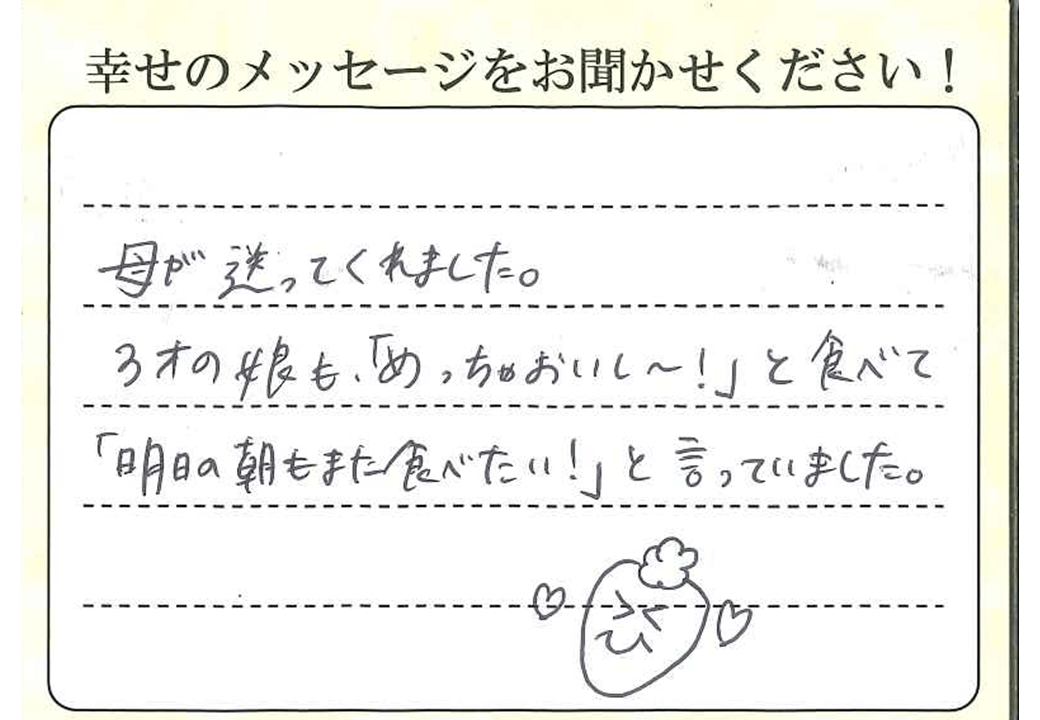 幸せのメッセージをお聞かせください！
母が送ってくれました。
3才の娘も、「めっちゃおいし〜！」と食べて
「明日の朝もまた食べたい！」と言っていました。